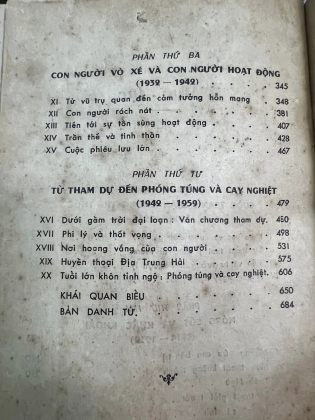 PHẦN THỨ BA
CON NGƯỜI VÒ XÉ VÀ CON NGƯỜI HOẠT ĐỘNG
(1932 — 1942) 345
XI Từ vũ trụ quan đến cảm tưởng hỗn mang 348
XII Con người rách nát 381
XIII Tiến tới sự tôn sùng hoạt động 407
XIV Trần thế và tinh thần 428
XV Cuộc phiêu lưu lớn 467
PHẦN THỨ TƯ
TỪ THAM DỰ ĐẾN PHÓNG TÚNG VÀ CAY NGHIỆT
(1942 — 1959) 479
XVI Dưới gầm trời đại loạn : Văn chương tham dự. 480
XVII Phi lý và thất vọng 498
XVIII Nơi hoang vắng của con người 531
XIX Huyền thoại Địa Trung Hải 575
XX Tuổi lớn khôn tỉnh ngộ : Phóng túng và cay nghiệt. 606
KHÁI QUAN BIỂU 650
BẢN DANH TỪ. 684